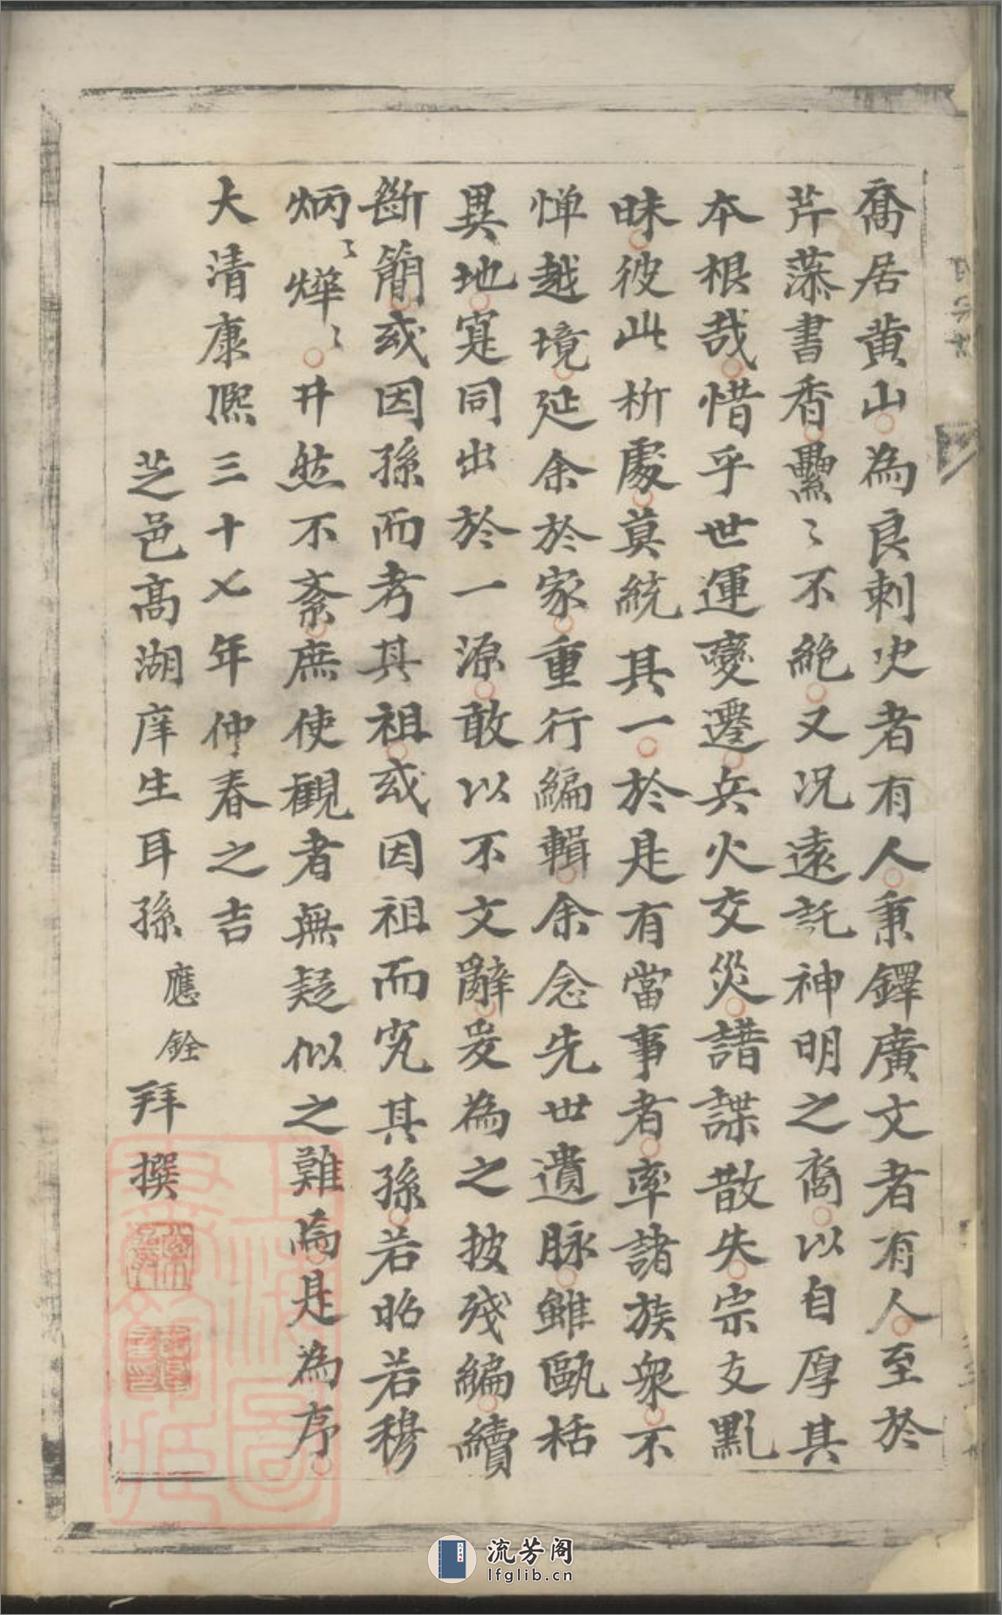 喬居黄山為良刺史者有人秉鐸廣文者有人至於
芹藻書香纍〻不絕又况遠託神明之裔以自厚其
本根哉惜乎世運變遷兵火交災譜諜散失宗支黙
昧彼此析處莫統其一於是有當事者率諸族衆不
惮越境延余於家重行編輯余念先世遺脉雖甌栝
異地寔同出於一源敢以不文辭爰為之披殘編續
斷簡或因孫而考其祖或因祖而究其孫若昭若穆
炳〻燁〻井然不紊庶使觀者無疑似之難焉是為序
大清康熈三十七年仲春之吉
芝邑高湖庠生耳孫應銓拜撰
上海圖書館藏
流芳阁
lfglib.cn